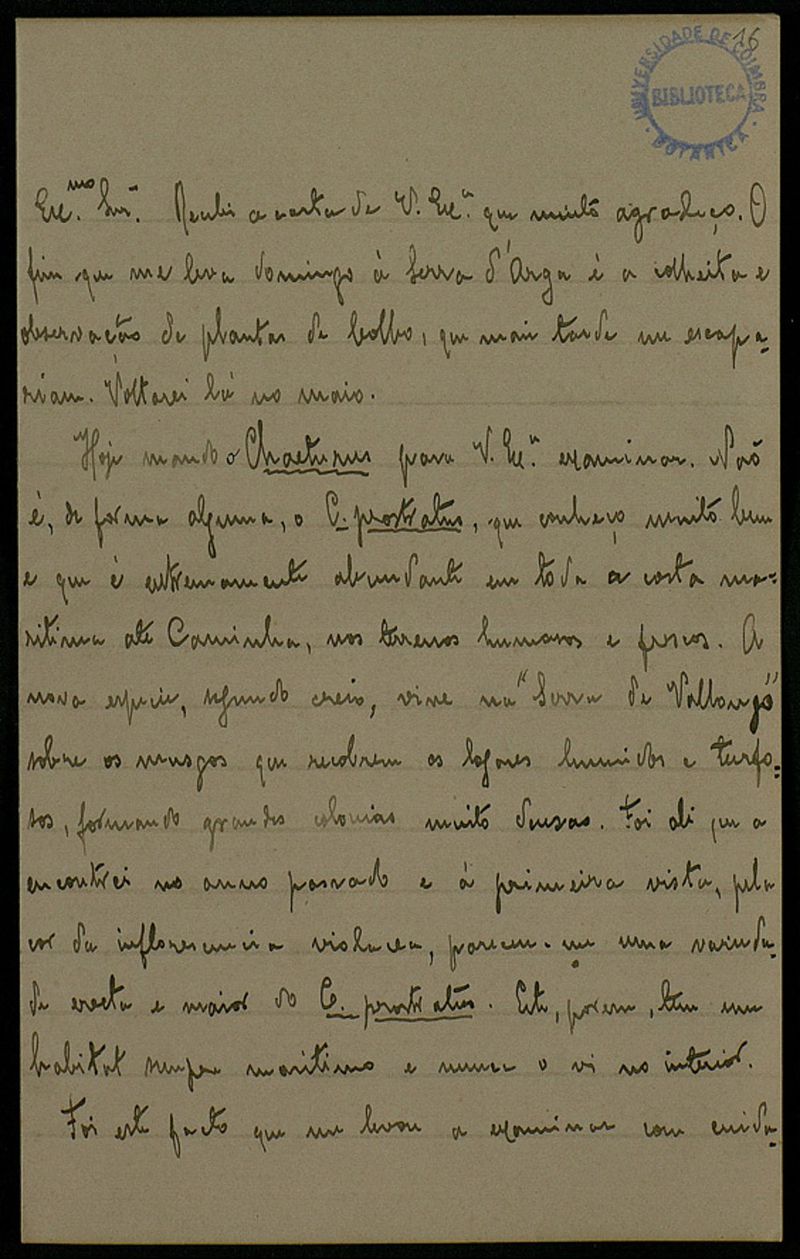 16
UNIVERSIDADE DE COIMBRA
BIBLIOTECA
BOTANICA
Ex.mo Snr. Recebi a carta de V. Ex.a que muito agradeço. O
fim que me leva domingo à Serra d'Arga é a colheita e
observação de plantas de bolbo, que mais tarde me escapa-
riam. Voltarei lá no maio.
Hoje mando o Chaeturus para V. Ex.a examinar. Não
é, de forma alguma, o C. prostratus, que conheço muito bem
e que é extremamente abundante em toda a costa ma-
ritima até Caminha, nos terrenos humosos e frescos. A
nova especie, segundo creio, vive na "Serra de Vallongo"
sobre os musgos que recobrem os logares humidos e turfo-
sos, formando grandes colonias muito densas. Foi ali que a
encontrei no anno passado e à primeira vista, pela
cor da inflorescencia violacea, pareceu-me uma varieda-
de erecta e maior do C. prostratus. Este, porem, tem um
habitat sempre maritimo e nunca o vi no interior.
Foi este facto que me levou a examinar com cuida-